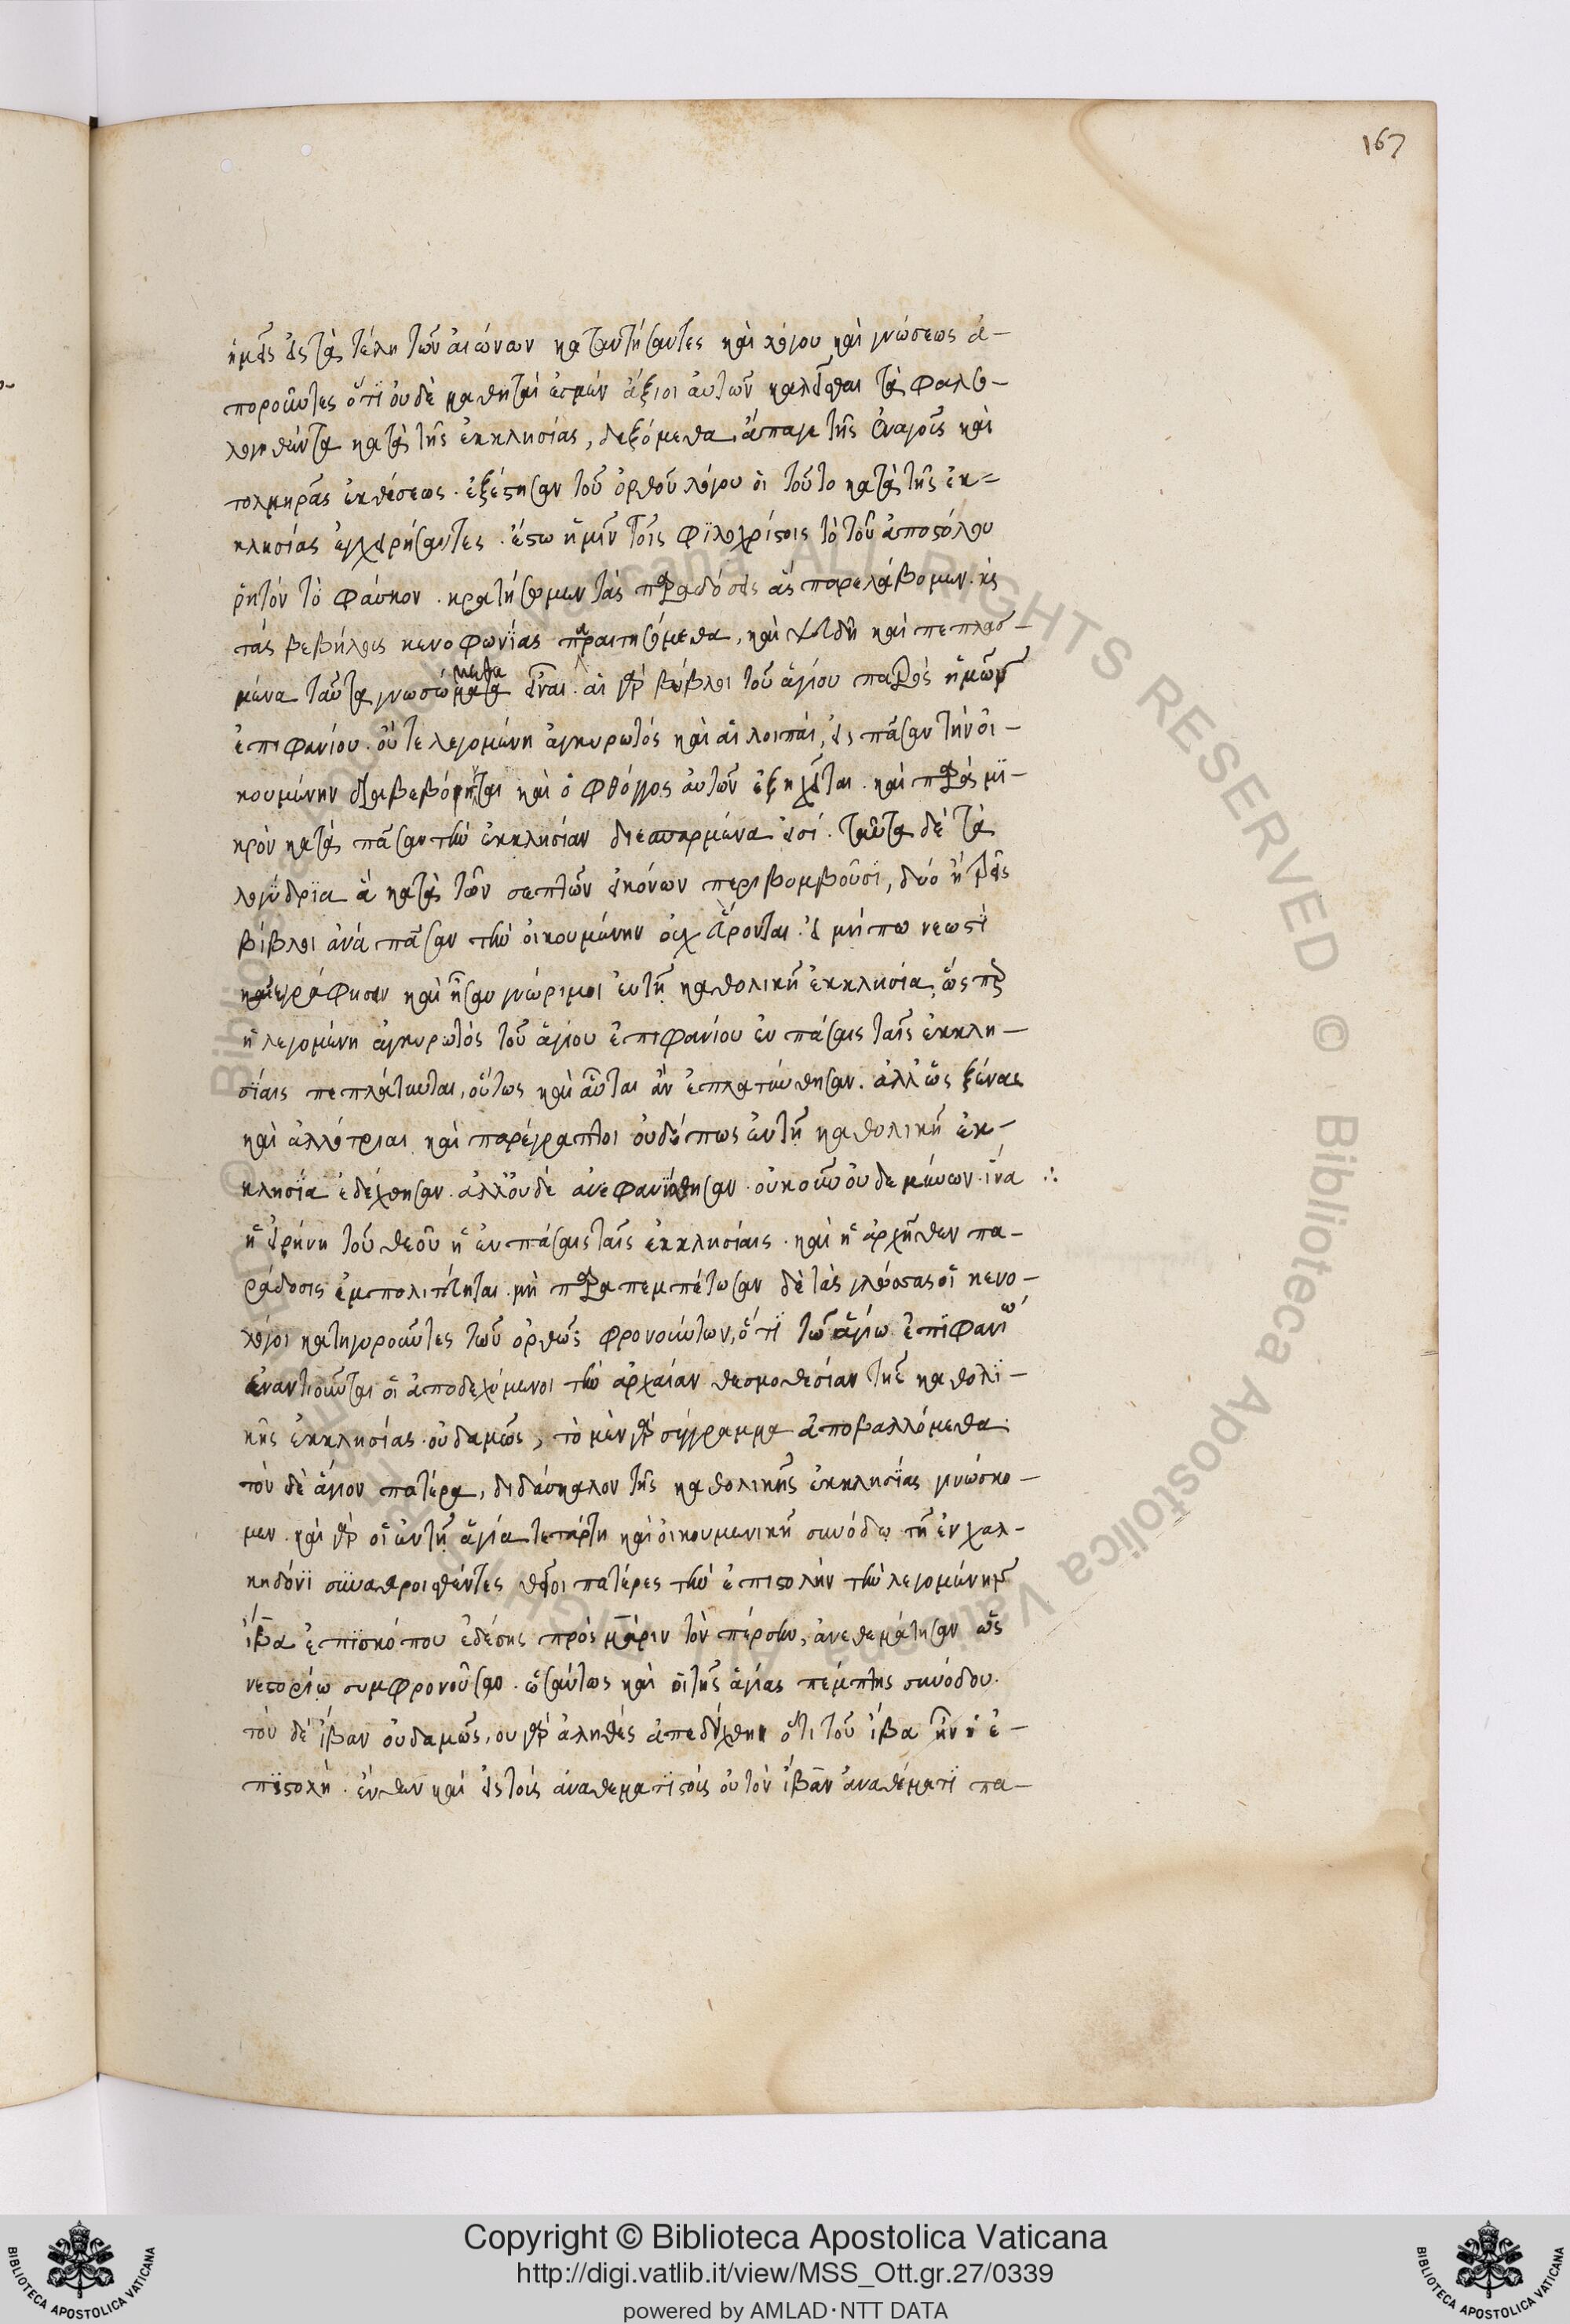 167
ἡμεῖς εἰς τὰ τέλη τῶν αἰώνων καταντήσαντες καὶ λόγου καὶ γνώσεως ἀ-
ποροῦντες ὅτϊ οὐδὲ μαθηταὶ ἐσμὲν ἄξιοι αὐτῶν καλεῖσθαι τὰ φαυλο-
λογηθέντα κατὰ τῆς ἐκκλησίας, δεξόμεθα. ἄπαγε τῆς ἐναγοῦς καὶ
τολμηρᾶς ἐκθέσεως. ἐξέστησαν τοῦ ὀρθοῦ λόγου οἱ τοῦτο κατὰ τῆς ἐκ-
κλησίας ἐγχειρήσαντες. ἔστω ἡμῖν τοῖς φϊλοχρίστοις τὸ τοῦ ἀποστόλου
ῥητόν τὸ φάσκον. κρατήσωμεν τὰς παραδόσεις ἃς παρελάβομεν. καὶ
τὰς βεβήλους κενοφωνΐας παραιτησόμεθα, καὶ ψευδῆ καὶ πεπλασ-
μένα ταῦτα γνωσόμεθα εἶναι. αἱ γὰρ βύβλοι τοῦ ἁγίου πατρὸς ἡμῶν
ἐπιφανίου. ὅ τε λεγομένη ἀγκυρωτός καὶ αἱ λοιπαί, εἰς πᾶσαν τὴν οἰ-
κουμένην διαβεβόηνται καὶ ὁ φθόγγος αὐτῶν ἐξηχεῖται. καὶ παρὰ μϊ-
κρὸν κατὰ πᾶσαν τὴν ἐκκλησίαν διεσπαρμένα εἰσί. ταῦτα δὲ τὰ
λογΰδρϊα ἃ κατὰ τῶν σεπτῶν εἰκόνων περιβομβοῦσϊ, δύο ἢ τρεῖς
βίβλοι ἀνά πᾶσαν τὴν οἰκουμένην οὐχ εὕρονται. εἰ μήπω νεωστὶ
κατεγράφησαν καὶ ἦσαν γνώριμοι ἐν τῇ καθολικῇ ἐκκλησία, ὥσπερ
ἡ λεγομένη ἀγκυρωτός τοῦ ἁγίου ἐπιφανίου ἐν πάσαις ταῖς ἐκκλη-
σίαις πεπλάτυνται, οὕτως καὶ αὗται ἂν ἐπλατύνθησαν. ἀλλ' ὡς ξέναι
καὶ ἀλλότριαι καὶ παρέγραπτοι οὐδέπως ἐν τῇ καθολικῇ ἐκ-
κλησΐα ἐδέχθησαν. ἀλλ' οὐδὲ ἀνεφανίσθησαν. οὐκοῦν οὐδὲ μένων. ἵνα ∴
ἡ εἰρήνη τοῦ θεοῦ ἡ ἐν πάσαις ταῖς ἐκκλησίαις. καὶ ἡ ἀρχῆθεν πα-
ράδοσις ἐμπολιτεύηται. μὴ παραπεμπέτωσαν δὲ τὰς γλώσσας οἱ κενο-
λόγοι κατηγοροῦντες τῶν ὀρθῶς φρονούντων, ὅτϊ τῶ ἁγίω ἐπϊφανίω
ἐναντιοῦνται οἱ ἀποδεχόμενοι τὴν ἀρχαίαν θεσμοθεσίαν τῆς καθολϊ-
κῆς ἐκκλησίας. οὐδαμῶς, τὸ μὲν γὰρ σύγγραμμα ἀποβαλλόμεθα.
τὸν δὲ ἅγιον πατέρα, διδάσκαλον τῆς καθολικῆς ἐκκλησΐας γινώσκο-
μεν. καὶ γὰρ οἱ ἐν τῇ ἁγία τετάρτη καὶ οἰκουμενικῆ συνόδω τῇ ἐν χαλ-
κηδόνϊ συναθροισθέντες θεῖοι πατέρες τὴν ἐπιστολὴν τὴν λεγομένην
ἴβα ἐπϊσκόπου ἐδέσης πρὸς μάριν τὸν πέρσην, ἀνεθεμάτησαν ὡς
νεστορίω συμφρονοῦσαν. ὡσαύτως καὶ οἱ τῆς ἁγίας πέμπτης συνόδου.
τὸν δὲ ἴβαν οὐδαμῶς, οὐ γὰρ ἀληθὲς ἀπεδείχθη ὅτι τοῦ ἴβα ἦν ἡ ἐ-
πϊστολή. ἔνθεν καὶ εἰς τοὺς ἀναθεματϊσμοὺς οὐ τὸν ἴβαν ἀναθέματϊ πα-
© Biblioteca Apostolica Vaticana ALL RIGHTS RESERVED © Biblioteca Apostolica Vaticana ALL RIGHTS RESERVED
BIBLIOTECA APOSTOLICA VATICANA
Copyright © Biblioteca Apostolica Vaticana
http://digi.vatlib.it/view/MSS_Ott.gr.27/0339
powered by AMLAD·NTT DATA
BIBLIOTECA APOSTOLICA VATICANA